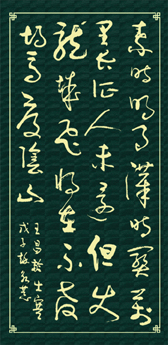 秦時明月漢時關萬
里長征人未還但使
龍城飛將在不教
胡馬度陰山
王昌齡出塞
戊子